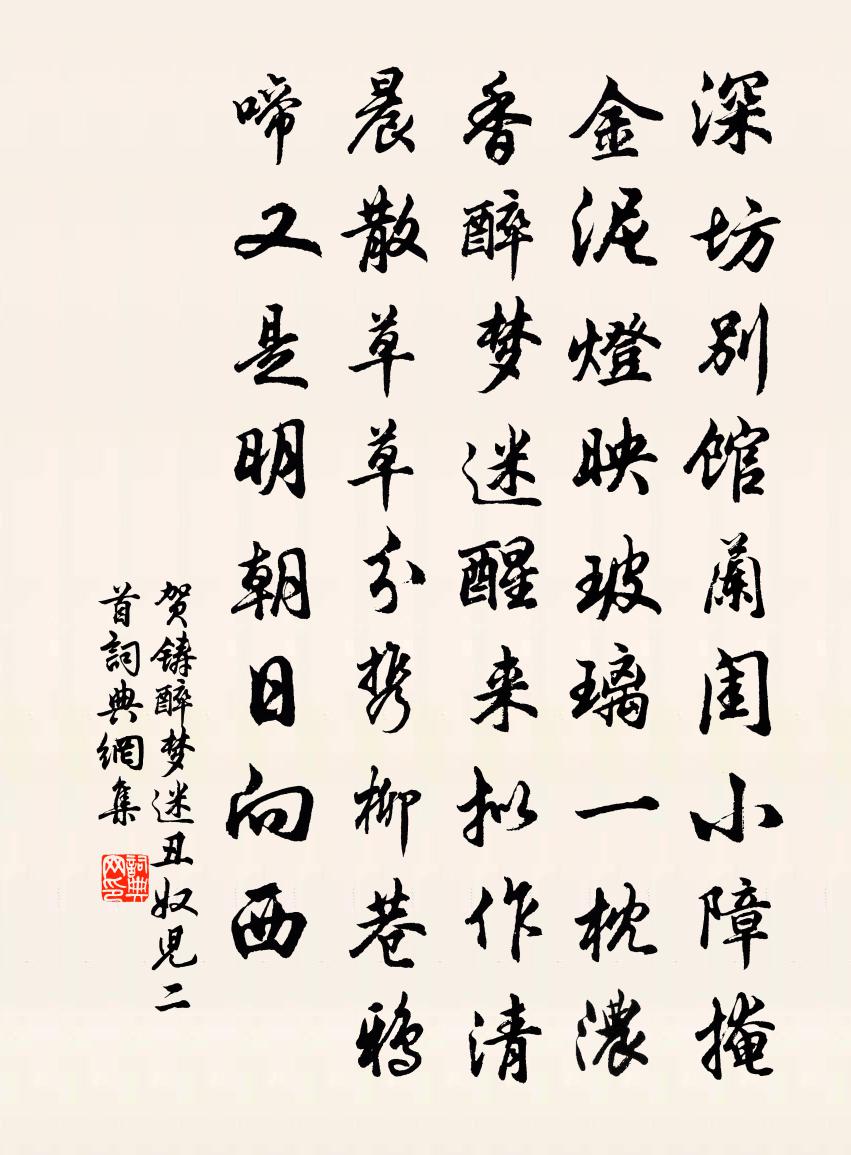 深坊別館蘭閨小障掩
金泥燈映玻璃一枕濃
香醉梦迷醒来拟作清
晨散草草分携柳巷鴉
啼又是明朝日向西
贺铸醉梦迷丑奴児二
首詞典網集
詞典
网印